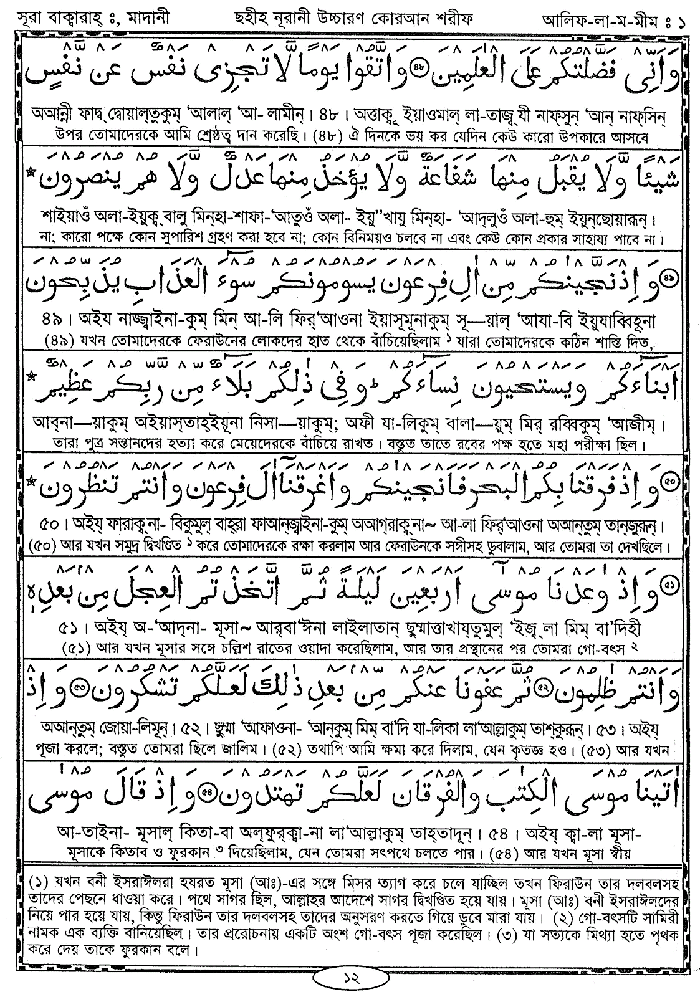 সূরা বাক্বারাহ্ ঃ, মাদানী ছহীহ নূরানী উচ্চারণ কোরআন শরীফ আলিফ-লা-ম-মীম ঃ ১
وَاَنِّىْ فَضَّلْتُكُمْ عَلَى الْعٰلَمِيْنَ ۝৪৮ وَاتَّقُوْا يَوْمًا لَّا تَجْزِىْ نَفْسٌ عَنْ نَّفْسٍ
অআন্নী ফাদ্ব্দ্বোয়াল্তুকুম্ 'আলাল্ 'আ-লামীন্। ৪৮। অত্তাক্বূ ইয়াওমাল্ লা-তাজ্যী নাফ্সুন্ 'আন্ নাফ্সিন্
উপর তোমাদেরকে আমি শ্রেষ্ঠত্ব দান করেছি। (৪৮) ঐ দিনকে ভয় কর যেদিন কেউ কারো উপকারে আসবে
شَيْئًا وَّلَا يُقْبَلُ مِنْهَا شَفَاعَةٌ وَّلَا يُؤْخَذُ مِنْهَا عَدْلٌ وَّلَا هُمْ يُنْصَرُوْنَ *
শাইয়াওঁ অলা-ইয়ুক্ব্বালু মিন্হা-শাফা-'আতুওঁ অলা- ইয়ু''খাযু মিন্হা- 'আদ্লুওঁ অলা-হুম্ ইয়ুন্ছোয়ারূন্।
না; কারো পক্ষে কোন সুপারিশ গ্রহণ করা হবে না; কোন বিনিময়ও চলবে না এবং কেউ কোন প্রকার সাহায্য পাবে না।
۝৪৯ وَاِذْ نَجَّيْنٰكُمْ مِّنْ اٰلِ فِرْعَوْنَ يَسُوْمُوْنَكُمْ سُوْٓءَ الْعَذَابِ يُذَبِّحُوْنَ
৪৯। অইয নাজ্জ্বাইনা-কুম্ মিন্ আ-লি ফির্'আওনা ইয়াসূমূনাকুম্ সূ—য়াল্ 'আযা-বি ইয়ুযাব্বিহূনা
(৪৯) যখন তোমাদেরকে ফেরাউনের লোকদের হাত থেকে বাঁচিয়েছিলাম ১ যারা তোমাদেরকে কঠিন শাস্তি দিত,
اَبْنَآءَكُمْ وَيَسْتَحْيُوْنَ نِسَآءَكُمْ ؕ وَفِىْ ذٰلِكُمْ بَلَآءٌ مِّنْ رَّبِّكُمْ عَظِيْمٌ *
আব্না—য়াকুম্ অইয়াস্তাহ্ইয়ূনা নিসা—য়াকুম্; অফী যা-লিকুম্ বালা—য়ুম্ মির্ রব্বিকুম্ 'আজীম্।
তারা পুত্র সন্তানদের হত্যা করে মেয়েদেরকে বাঁচিয়ে রাখত। বস্তুত তাতে রবের পক্ষ হতে মহা পরীক্ষা ছিল।
۝৫০ وَاِذْ فَرَقْنَا بِكُمُ الْبَحْرَ فَاَنْجَيْنٰكُمْ وَاَغْرَقْنَآ اٰلَ فِرْعَوْنَ وَاَنْتُمْ تَنْظُرُوْنَ *
৫০। অইয্ ফারাক্বনা- বিকুমুল্ বাহ্রা ফাআন্জ্বাইনা-কুম্ অআগ্রাক্বনা~ আ-লা ফির্'আওনা অআন্তুম্ তান্জুরূন্।
(৫০) আর যখন সমুদ্র দ্বিখণ্ডিত ১ করে তোমাদেরকে রক্ষা করলাম আর ফেরাউনকে সঙ্গীসহ ডুবালাম, আর তোমরা তা দেখছিলে।
۝৫১ وَاِذْ وٰعَدْنَا مُوْسٰٓى اَرْبَعِيْنَ لَيْلَةً ثُمَّ اتَّخَذْتُمُ الْعِجْلَ مِنْۢ بَعْدِهٖ
৫১। অইয্ অ-'আদ্না- মূসা~ আর্বা'ঈনা লাইলাতান্ ছুম্মাত্তাখায্তুমুল্ 'ইজ্ব্লা মিম্ বা'দিহী
(৫১) আর যখন মূসার সঙ্গে চল্লিশ রাতের ওয়াদা করেছিলাম, আর তার প্রস্থানের পর তোমরা গো-বৎস ২
وَاَنْتُمْ ظٰلِمُوْنَ ۝৫২ ثُمَّ عَفَوْنَا عَنْكُمْ مِّنْۢ بَعْدِ ذٰلِكَ لَعَلَّكُمْ تَشْكُرُوْنَ ۝৫৩ وَاِذْ
অআন্তুম্ জোয়া-লিমূন্। ৫২। ছুম্মা 'আফাওনা- 'আন্কুম্ মিম্ বা'দি যা-লিকা লা'আল্লাকুম্ তাশ্কুরূন্। ৫৩। অইয্
পূজা করলে; বস্তুত তোমরা ছিলে জালিম। (৫২) তথাপি আমি ক্ষমা করে দিলাম, যেন কৃতজ্ঞ হও। (৫৩) আর যখন
اٰتَيْنَا مُوْسَى الْكِتٰبَ وَالْفُرْقَانَ لَعَلَّكُمْ تَهْتَدُوْنَ ۝৫৪ وَاِذْ قَالَ مُوْسٰى
আ-তাইনা- মূসাল্ কিতা-বা অল্ফুর্ক্বা-না লা'আল্লাকুম্ তাহ্তাদূন্। ৫৪। অইয্ ক্বা-লা মূসা-
মূসাকে কিতাব ও ফুরকান ৩ দিয়েছিলাম, যেন তোমরা সৎপথে চলতে পার। (৫৪) আর যখন মূসা স্বীয়
(১) যখন বনী ইসরাঈলরা হযরত মূসা (আঃ)-এর সঙ্গে মিসর ত্যাগ করে চলে যাচ্ছিল তখন ফিরাউন তার দলবলসহ
তাদের পেছনে ধাওয়া করে। পথে সাগর ছিল, আল্লাহর আদেশে সাগর দ্বিখণ্ডিত হয়ে যায়। মূসা (আঃ) বনী ইসরাঈলদের
নিয়ে পার হয়ে যায়, কিন্তু ফিরাউন তার দলবলসহ তাদের অনুসরণ করতে গিয়ে ডুবে মারা যায়। (২) গো-বৎসটি সামিরী
নামক এক ব্যক্তি বানিয়েছিল। তার প্ররোচনায় একটি অংশ গো-বৎস পূজা করেছিল। (৩) যা সত্যকে মিথ্যা হতে পৃথক
করে দেয় তাকে ফুরকান বলে।
১২